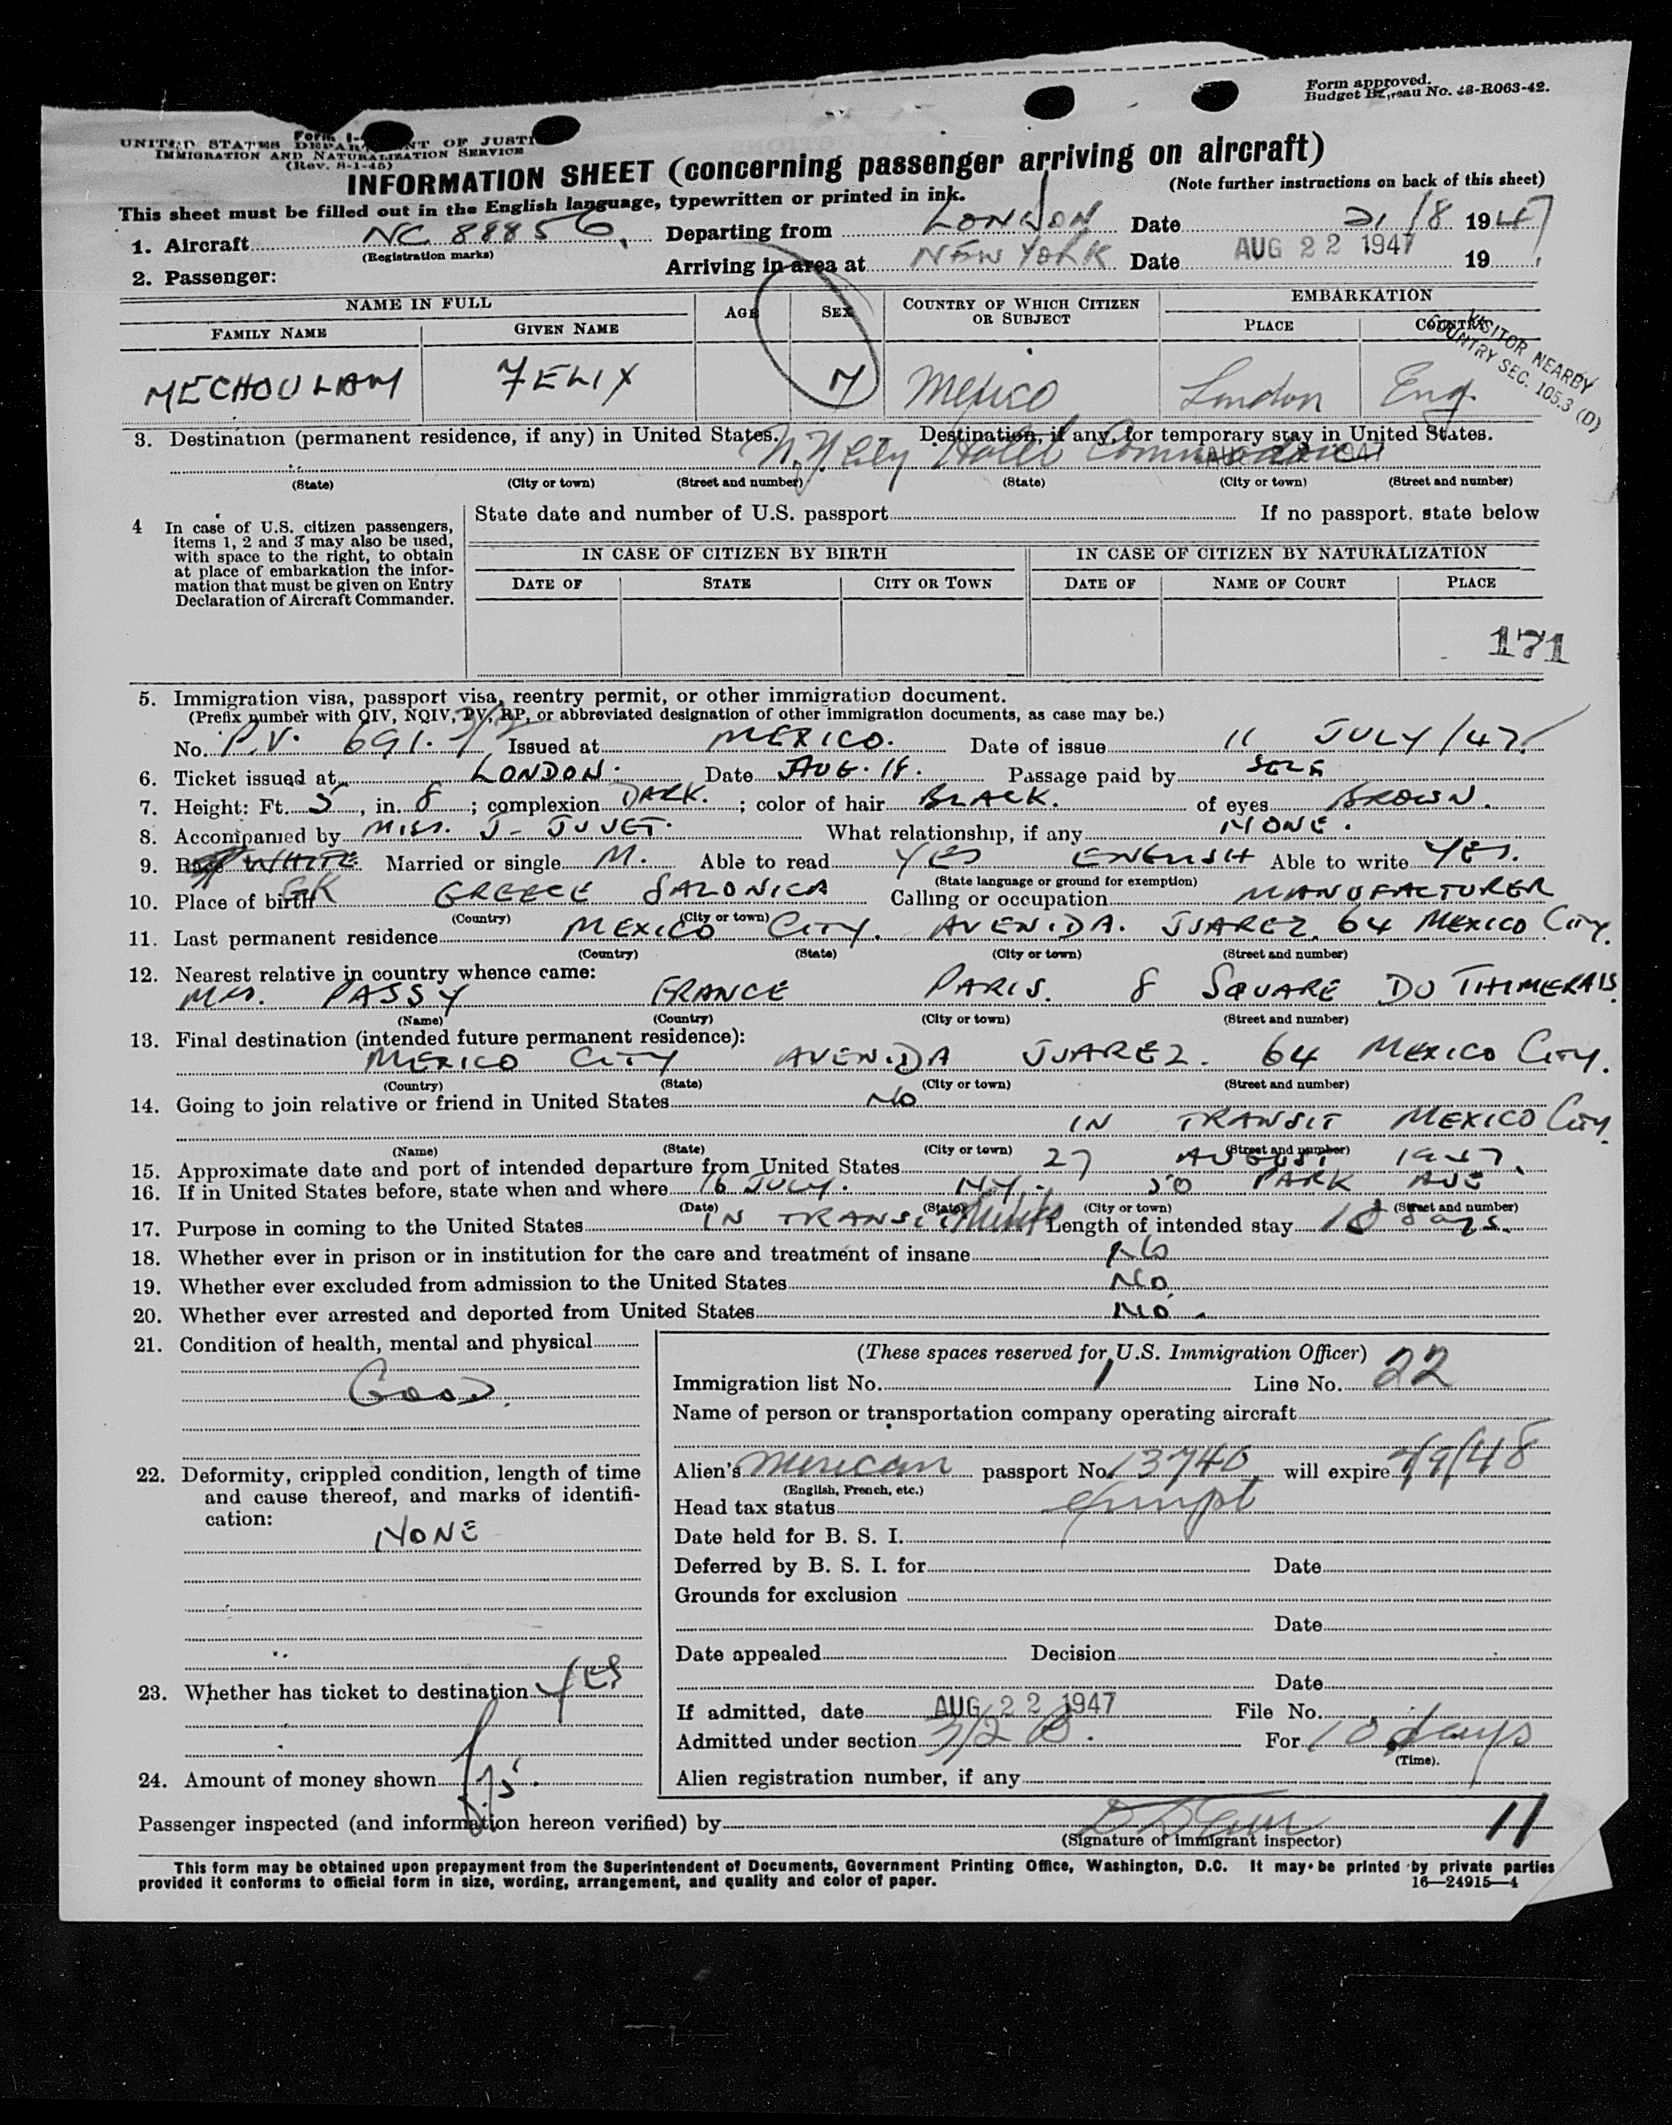 Form approved.
Budget Bureau No. 43-R063-42.
Form I-
UNITED STATES DEPARTMENT OF JUSTI
IMMIGRATION AND NATURALIZATION SERVICE
(Rev. 8-1-45)
INFORMATION SHEET (concerning passenger arriving on aircraft)
(Note further instructions on back of this sheet)
This sheet must be filled out in the English language, typewritten or printed in ink.
1. Aircraft NC 88856 Departing from LONDON Date 21/8 1947
(Registration marks)
2. Passenger: Arriving in area at NEW YORK Date AUG 22 1947 19
NAME IN FULL AGE SEX COUNTRY OF WHICH CITIZEN OR SUBJECT EMBARKATION
FAMILY NAME GIVEN NAME PLACE COUNTRY
VISITOR NEARBY
COUNTRY SEC. 105.3 (D)
MECHOULAM FELIX M Mexico London Eng.
3. Destination (permanent residence, if any) in United States. Destination, if any, for temporary stay in United States.
N.Y. City Hotel Commodore
(State) (City or town) (Street and number) (State) (City or town) (Street and number)
4 In case of U.S. citizen passengers, items 1, 2 and 3 may also be used, with space to the right, to obtain at place of embarkation the information that must be given on Entry Declaration of Aircraft Commander.
State date and number of U.S. passport If no passport, state below
IN CASE OF CITIZEN BY BIRTH IN CASE OF CITIZEN BY NATURALIZATION
DATE OF STATE CITY OR TOWN DATE OF NAME OF COURT PLACE
171
5. Immigration visa, passport visa, reentry permit, or other immigration document.
(Prefix number with QIV, NQIV, PV, RP, or abbreviated designation of other immigration documents, as case may be.)
No. P.V. 691. 3/2 Issued at MEXICO. Date of issue 11 JULY/47.
6. Ticket issued at LONDON. Date AUG. 18. Passage paid by SELF
7. Height: Ft. 5, in. 8; complexion DARK.; color of hair BLACK. of eyes BROWN.
8. Accompanied by MISS. J. JUVET. What relationship, if any NONE.
9. Race WHITE Married or single M. Able to read YES ENGLISH Able to write YES.
(State language or ground for exemption)
10. Place of birth GK GREECE SALONICA Calling or occupation MANUFACTURER
(Country) (City or town)
11. Last permanent residence MEXICO CITY. AVENIDA. JUAREZ. 64 MEXICO CITY.
(Country) (State) (City or town) (Street and number)
12. Nearest relative in country whence came:
MRS. PASSY FRANCE PARIS. 8 SQUARE DU THIMERAIS.
(Name) (Country) (City or town) (Street and number)
13. Final destination (intended future permanent residence):
MEXICO CITY AVENIDA JUAREZ. 64 MEXICO CITY.
(Country) (State) (City or town) (Street and number)
14. Going to join relative or friend in United States NO
IN TRANSIT MEXICO CITY.
(Name) (State) (City or town) (Street and number)
15. Approximate date and port of intended departure from United States 27 AUGUST 1947.
16. If in United States before, state when and where 16 JULY. N.Y. 50 PARK AVE
(Date) (State) (City or town) (Street and number)
17. Purpose in coming to the United States IN TRANSIT Mexico Length of intended stay 10 days.
18. Whether ever in prison or in institution for the care and treatment of insane NO
19. Whether ever excluded from admission to the United States NO
20. Whether ever arrested and deported from United States NO.
21. Condition of health, mental and physical
GOOD.
22. Deformity, crippled condition, length of time and cause thereof, and marks of identification:
NONE
23. Whether has ticket to destination YES
24. Amount of money shown £.5.
(These spaces reserved for U.S. Immigration Officer)
Immigration list No. 1 Line No. 22
Name of person or transportation company operating aircraft
Alien's Mexican passport No. 13740 will expire 7/9/48
(English, French, etc.)
Head tax status Exempt
Date held for B. S. I.
Deferred by B. S. I. for Date
Grounds for exclusion
Date
Date appealed Decision
Date
If admitted, date AUG 22 1947 File No.
Admitted under section 3/2 B. For 10 days
(Time).
Alien registration number, if any
Passenger inspected (and information hereon verified) by
(Signature of immigrant inspector)
11
This form may be obtained upon prepayment from the Superintendent of Documents, Government Printing Office, Washington, D.C. It may be printed by private parties
provided it conforms to official form in size, wording, arrangement, and quality and color of paper. 16—24915—4